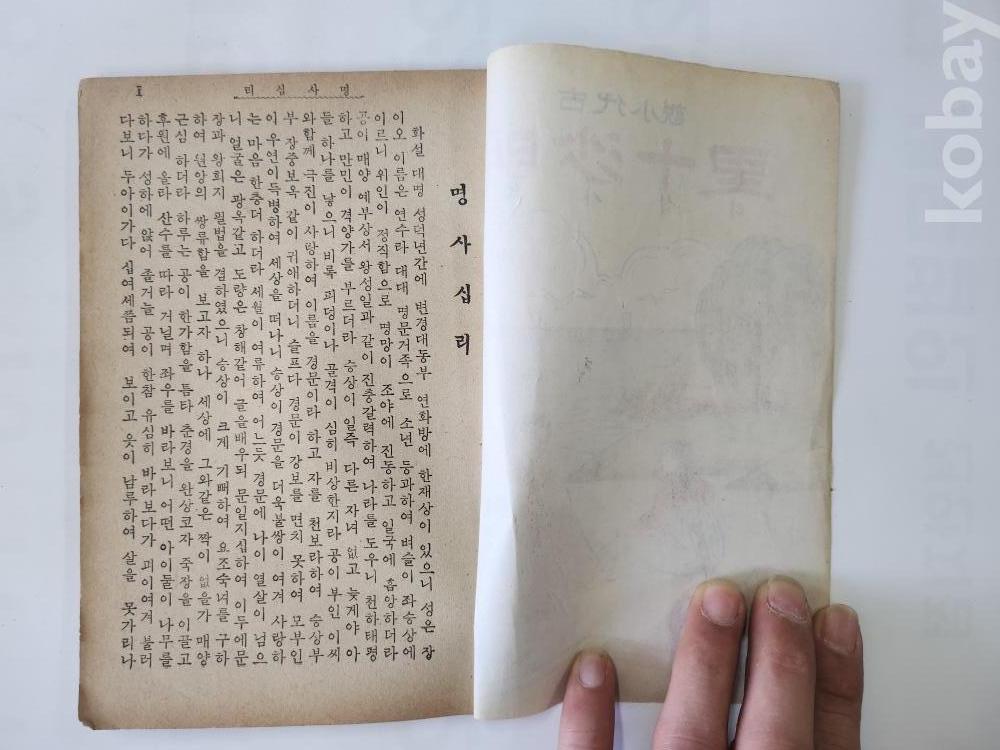 명사십리
1
명사십리
화설 대명 성덕년간에 변경대동부 연화방에 한재상이 있으니 성은 장
이오 이름은 연수라 대대 명문거족으로 소년 등과하여 벼슬이 좌승상에
이르니 위인이 정직함으로 명망이 조야에 진동하고 일국에 흡앙하더라
공이 매양 예부상서 왕성일과 같이 진충갈력하여 나라를 도우니 천하태평
하고 만민이 격양가를 부르더라 승상이 일즉 다른 자녀 없고 늦게야 아
들 하나를 낳으니 비록 피덩이나 골격이 심히 비상한지라 공이 부인 이씨
와함께 극진이 사랑하여 이름을 경문이라 하고 자를 천보라하여 승상부
부 장중보옥 같이 귀애하더니 슬프다 경문이 강보를 면치 못하여 모부인
이 우연이득병하여 세상을 떠나니 승상이 경문을 더욱불쌍이 여겨 사랑하
는 마음 한층더 하더라 세월이 여류하여 어느듯 경문에 나이 열살이 넘으
니 얼굴은 광옥같고 도량은 창해같어 글을배우되 문일지십하여 이두에문
장과 왕희지 필법을 겸하였으니 승상이 크게 기뻐하여 요조숙녀를 구하
하여 원앙의 쌍류합을 보고자 하나 세상에 그와같은 짝이 없을가 매양
근심 하더라 하루는 공이 한가함을 틈타 춘경을 완상코자 죽장을 이끌고
후원에 올라 산수를 따라 거닐며 좌우를 바라보니 어떤 아이둘이 나무를
하다가 성하에 앉어 졸거늘 공이 한참 유심히 바라보다가 괴이여겨 불러
다보니 두아이가다 십여세쯤되여 보이고 옷이 남루하여 살을 못가리나
古代小說
kobay